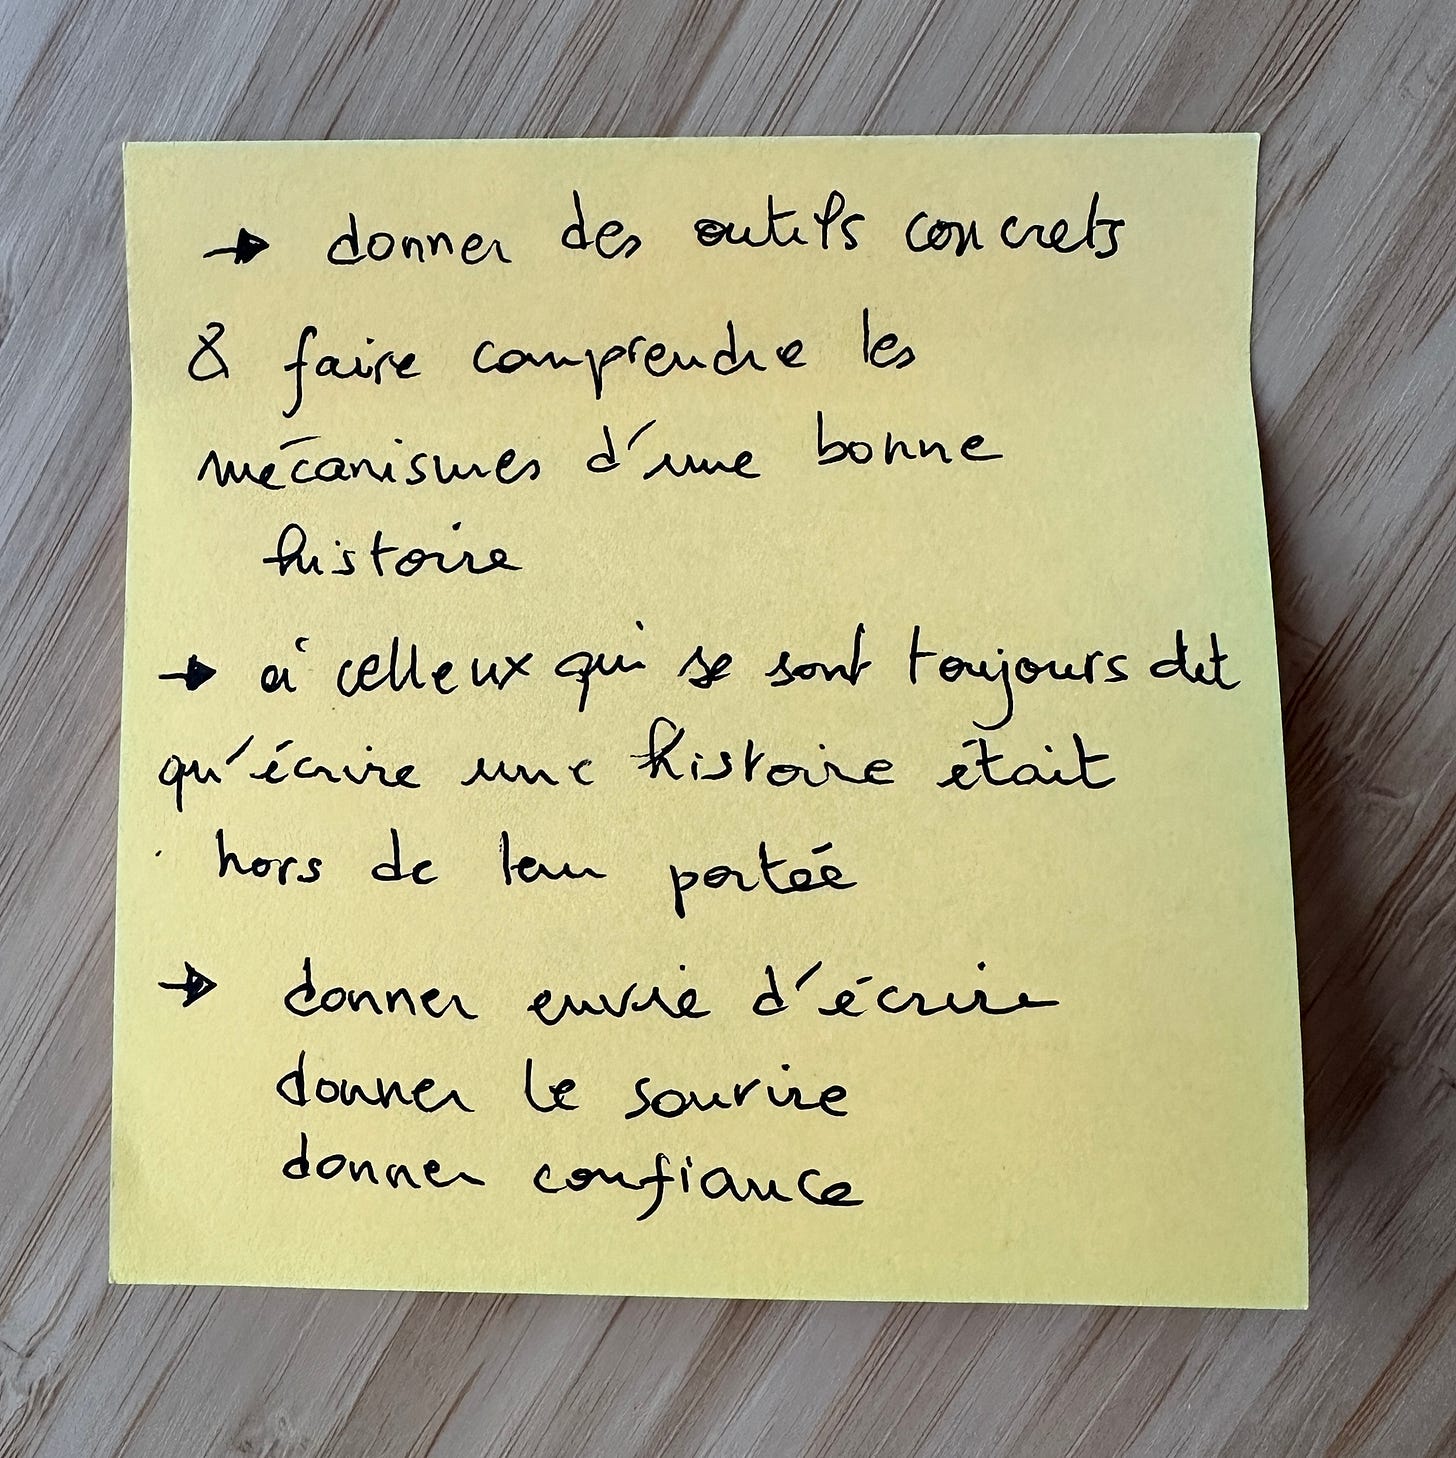 → donner des outils concrets
& faire comprendre les
mécanismes d'une bonne
histoire
→ à celleux qui se sont toujours dit
qu'écrire une histoire était
hors de leur portée
→ donner envie d'écrire
donner le sourire
donner confiance